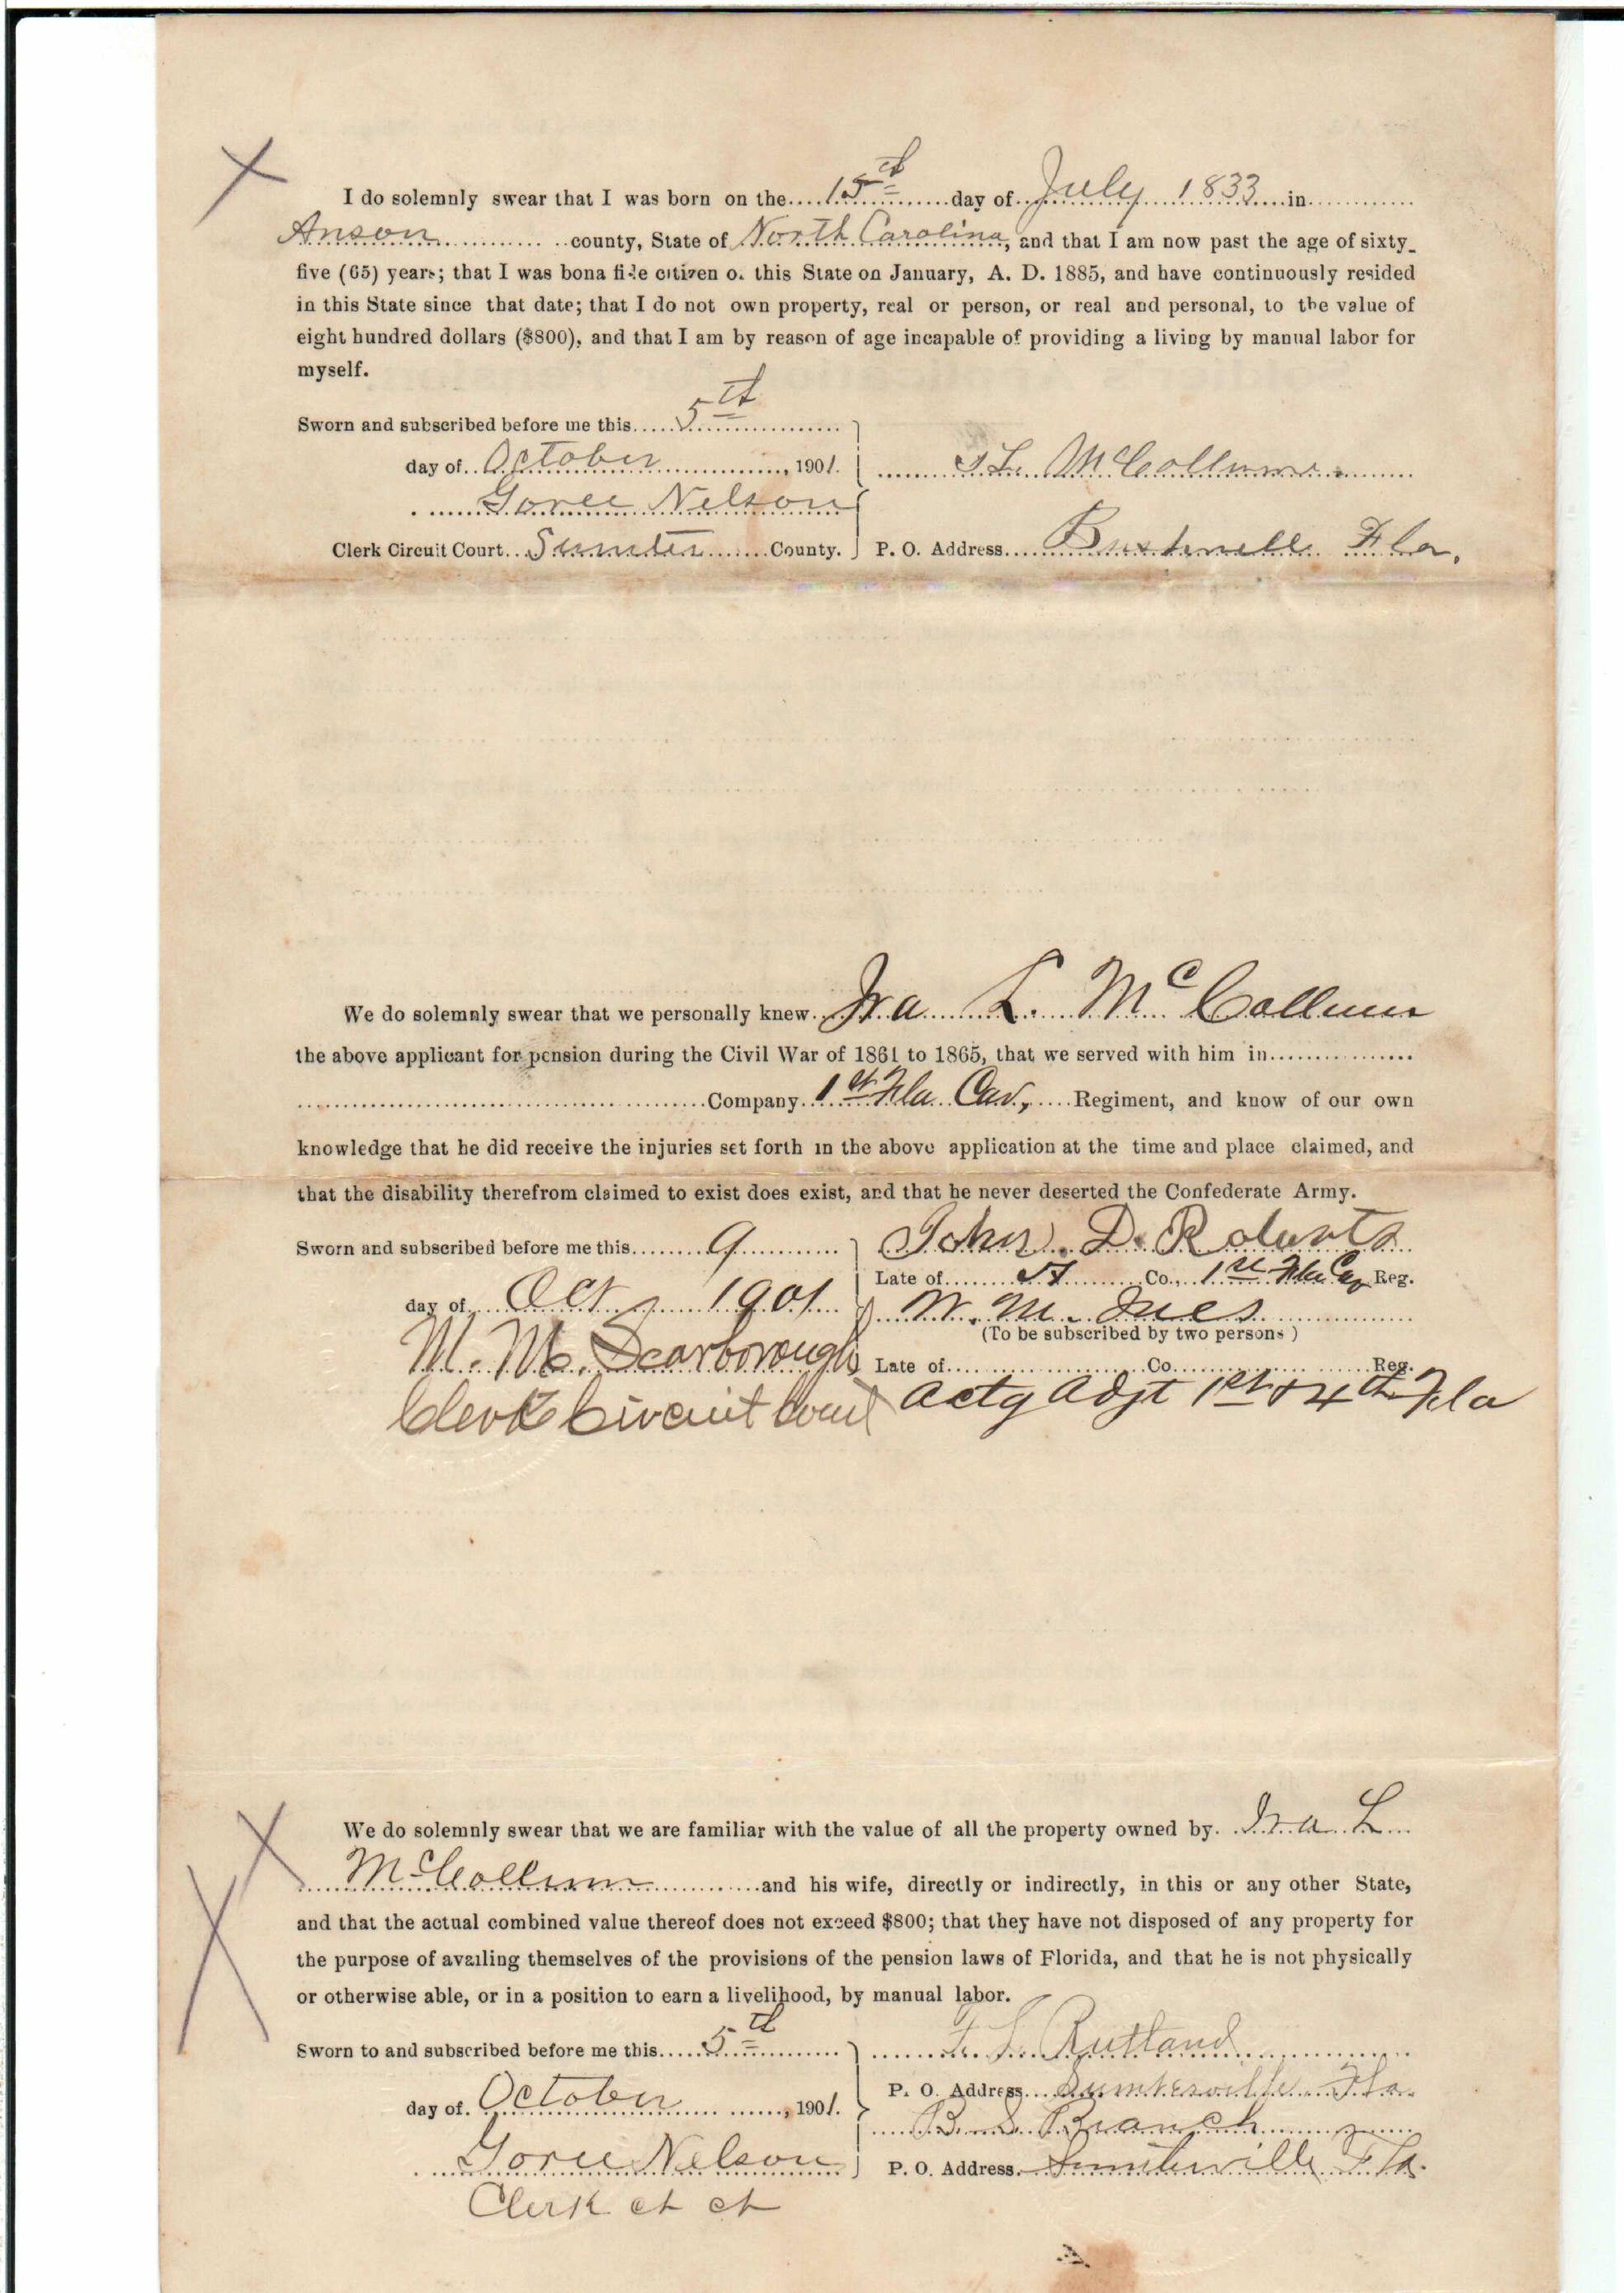 I do solemnly swear that I was born on the 15th day of July 1833 in
Anson county, State of North Carolina, and that I am now past the age of sixty-
five (65) years; that I was bona fide citizen of this State on January, A. D. 1885, and have continuously resided
in this State since that date; that I do not own property, real or person, or real and personal, to the value of
eight hundred dollars ($800), and that I am by reason of age incapable of providing a living by manual labor for
myself.
Sworn and subscribed before me this 5th
day of October, 1901. L. McCollum
Goree Nelson
Clerk Circuit Court Sumter County. P. O. Address Bushnell Fla.
We do solemnly swear that we personally knew Ira L. McCollum
the above applicant for pension during the Civil War of 1861 to 1865, that we served with him in
Company 1st Fla Cav, Regiment, and know of our own
knowledge that he did receive the injuries set forth in the above application at the time and place claimed, and
that the disability therefrom claimed to exist does exist, and that he never deserted the Confederate Army.
Sworn and subscribed before me this 9 John D. Roberts
Late of Co., 1st Fla Cav Reg.
day of Oct 1901 W. M. Ives
(To be subscribed by two persons)
M. M. Scarborough Late of Co. Reg.
Clerk Circuit Court Actg Adjt 1st & 4th Fla
We do solemnly swear that we are familiar with the value of all the property owned by Ira L
McCollum and his wife, directly or indirectly, in this or any other State,
and that the actual combined value thereof does not exceed $800; that they have not disposed of any property for
the purpose of availing themselves of the provisions of the pension laws of Florida, and that he is not physically
or otherwise able, or in a position to earn a livelihood, by manual labor.
Sworn to and subscribed before me this 5th Rutland
P. O. Address Sumterville Fla.
day of October, 1901. B. S. Branch
Goree Nelson P. O. Address. Sumterville Fla.
Clerk ct ct